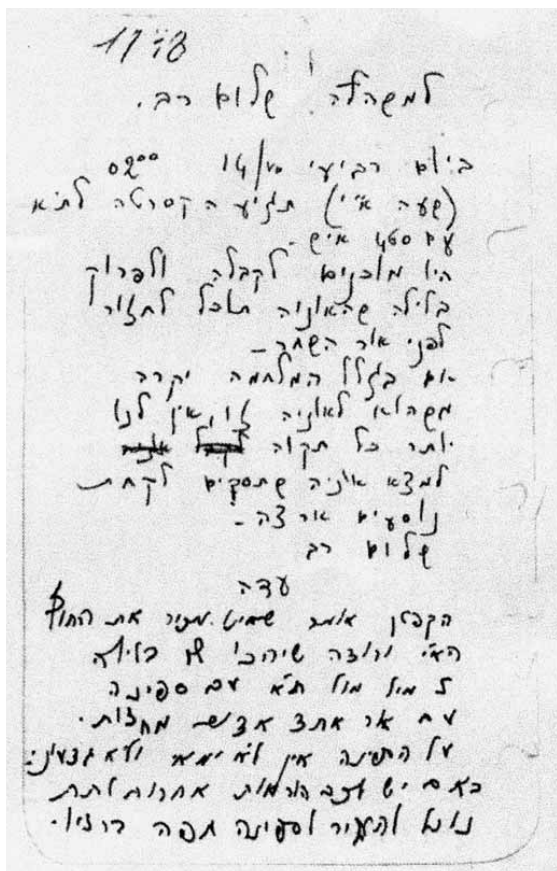 למשהלה שלום רב.
ביום רביעי 14/ 0200
(שעה א"י) תגיע הקסרטה לת"א
עם איש.
היו מוכנים לקבלה ולפרוק
בלילה שהאוניה תוכל לחזור
לפני אור השחר –
אם בגלל המלחמה יקרה
משהוא לאוניה זו, אין לנו
יותר כל תקוה
למצא אוניה שתסכים לקחת
נוסעים ארצה.-
שלום רב
עדה
הקפטן אומר שאינו מכיר את החוף
הא"י ורוצה שיחכו לו בלילה
2 מיל מול ת"א עם ספינה
עם אור
על הספינה אין לא ימאי ולא גדעוני.
באם יש לכם הוראות אחרות לתת
נוכל להעביר לספינה מפה ברדיו.